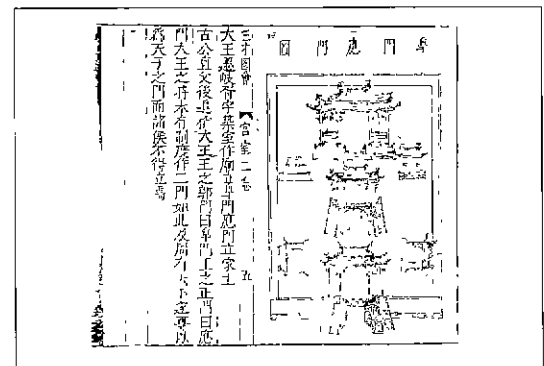 皋門應門圖
三才圖會 宮室二卷 九
大王遷岐胥宇築室作廟立皋門應門立冢土
古公亶父後追稱大王王之郭門曰皋門王之正門曰應
門大王之時本有制度作二門如此及周有天下遂尊以
為天子之門而諸侯不得立焉